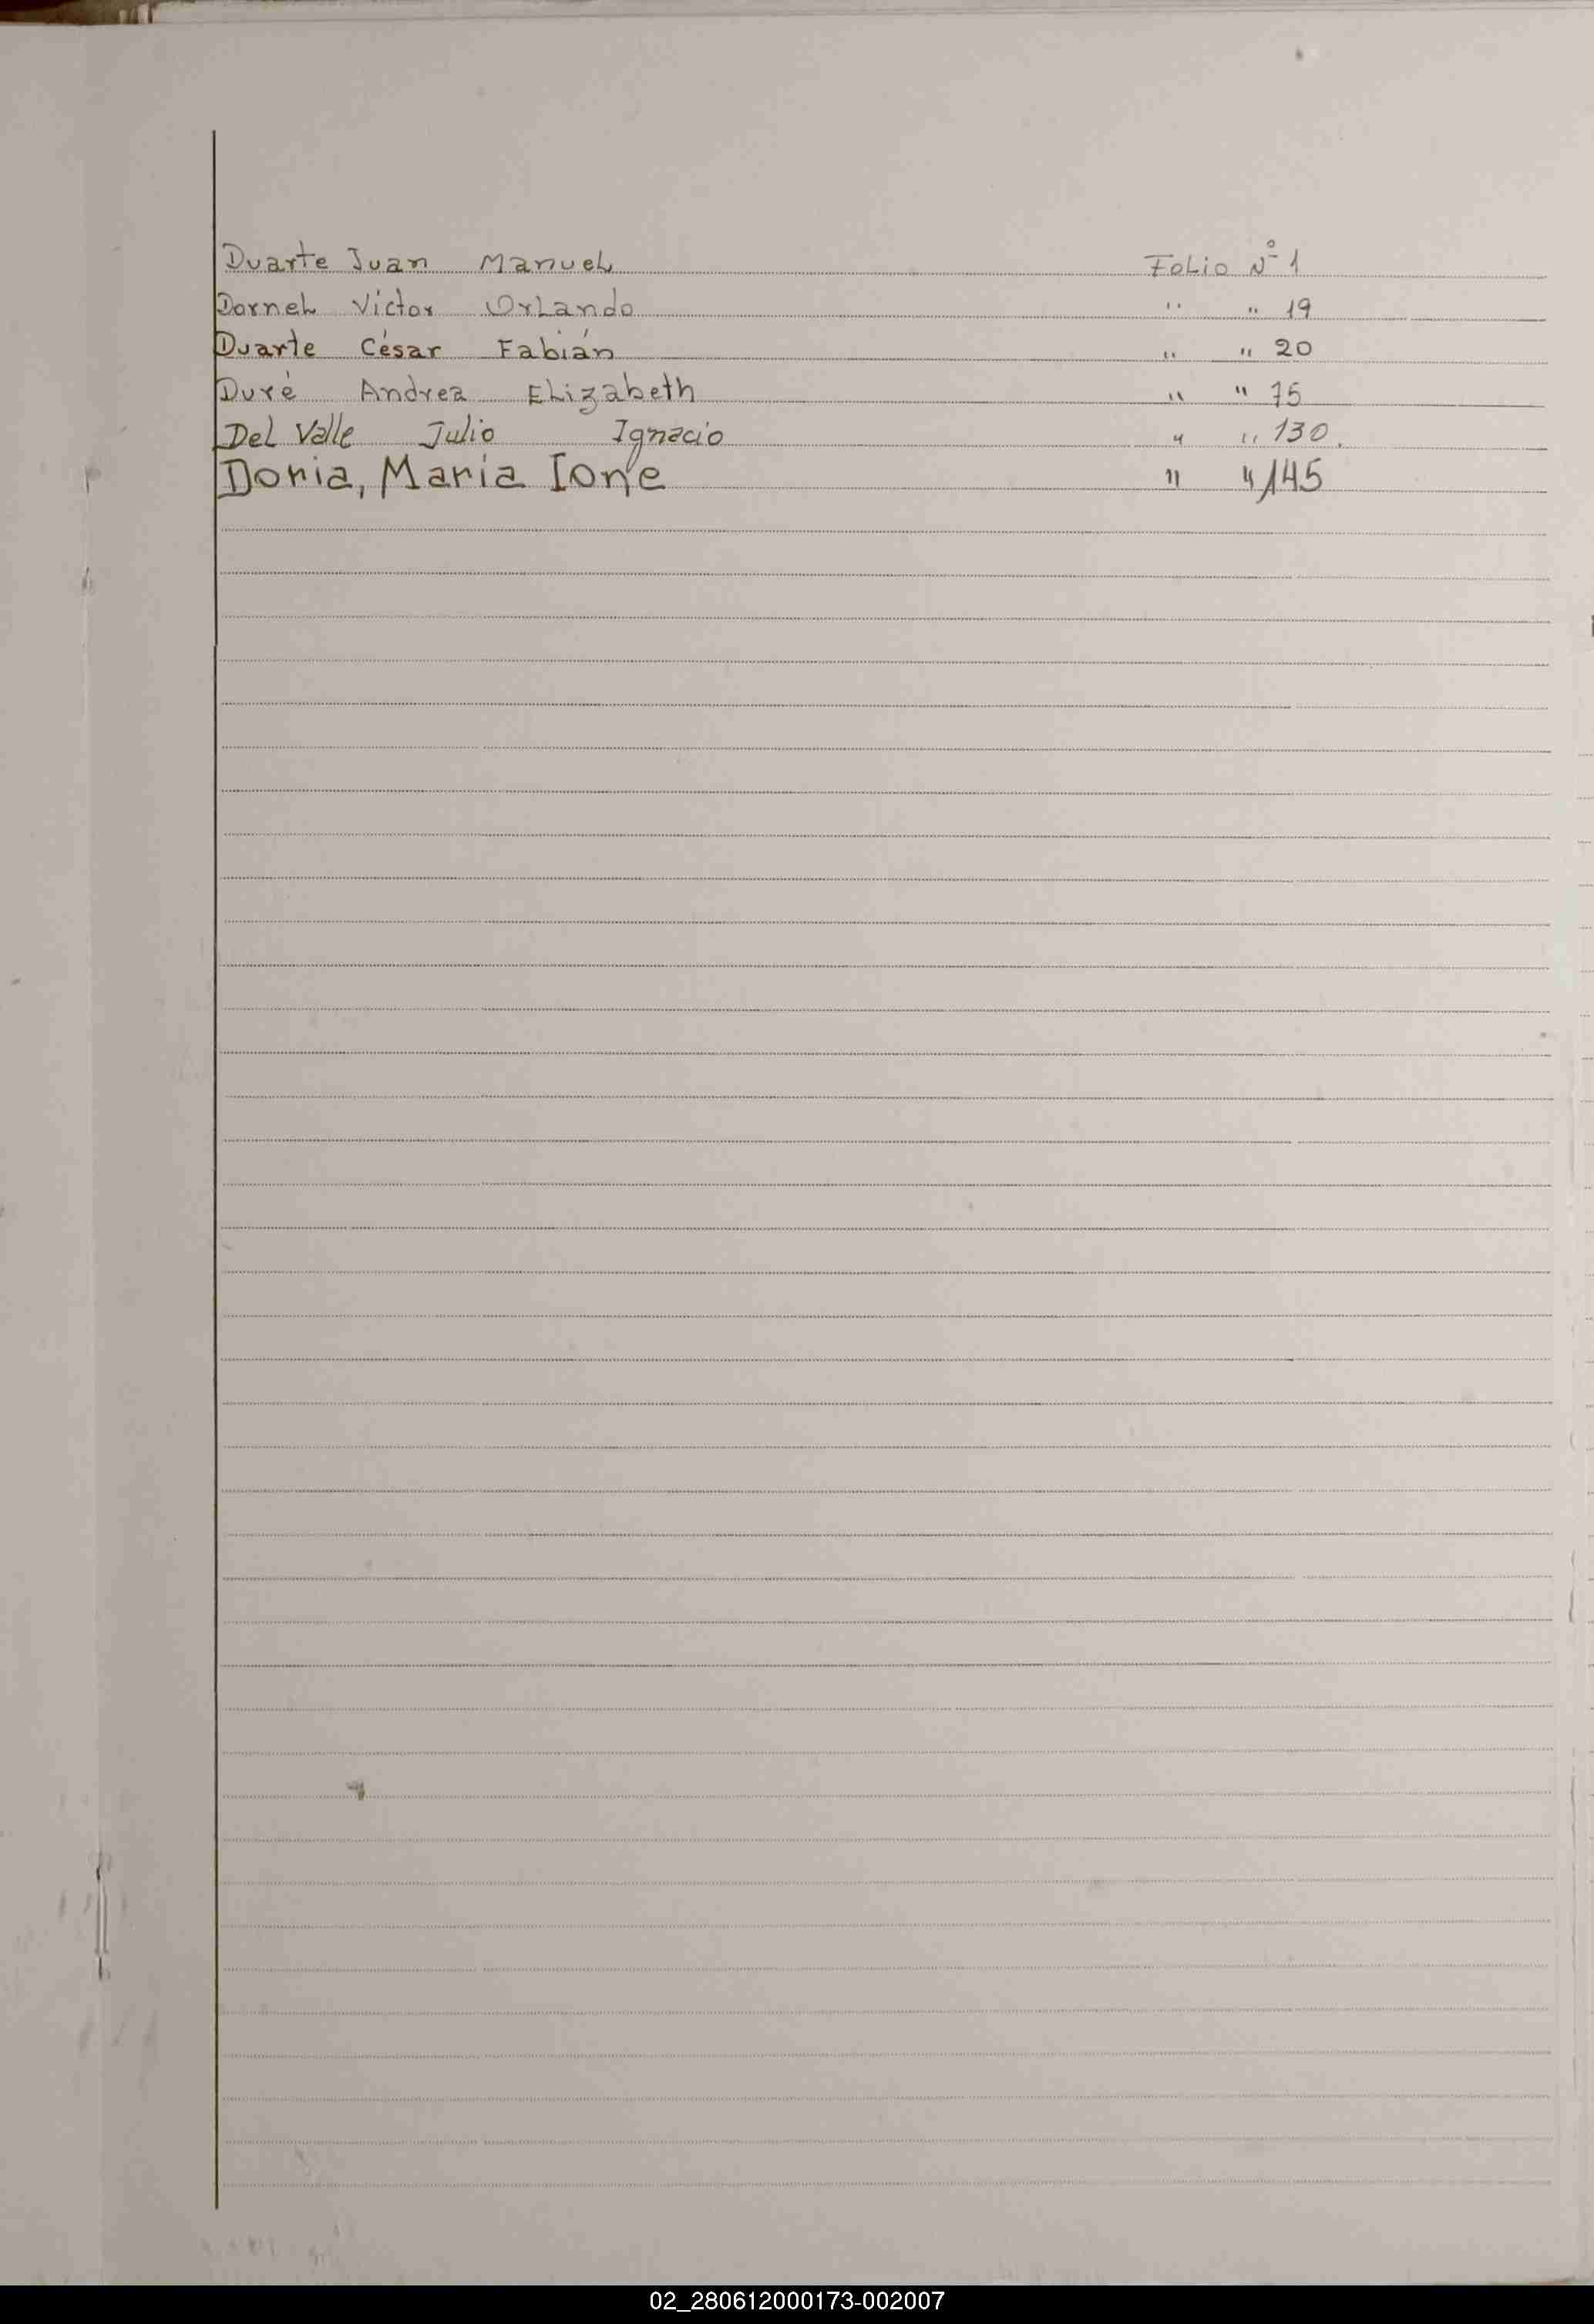 Duarte Juan Manuel Folio Nº 1
Dornel Victor Orlando " " 19
Duarte César Fabián " " 20
Duré Andrea Elizabeth " " 75
Del Valle Julio Ignacio " " 130.
Doria, Maria Ione " " 145
02_280612000173-002007